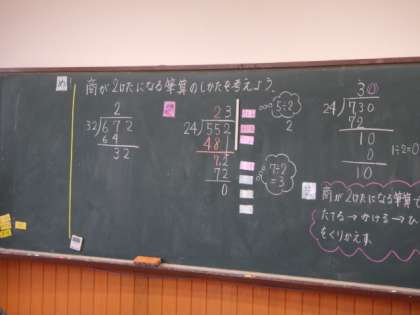 め
商が2けたになる筆算のしかたを考えよう。
2
32)672
64
32
23
24)552
48
72
72
0
5÷2
2
7÷2
=3
30
24)730
72
10
0
10
1÷2=0
商が2けたになる筆算で
たてる→かける→ひ
をくりかえす